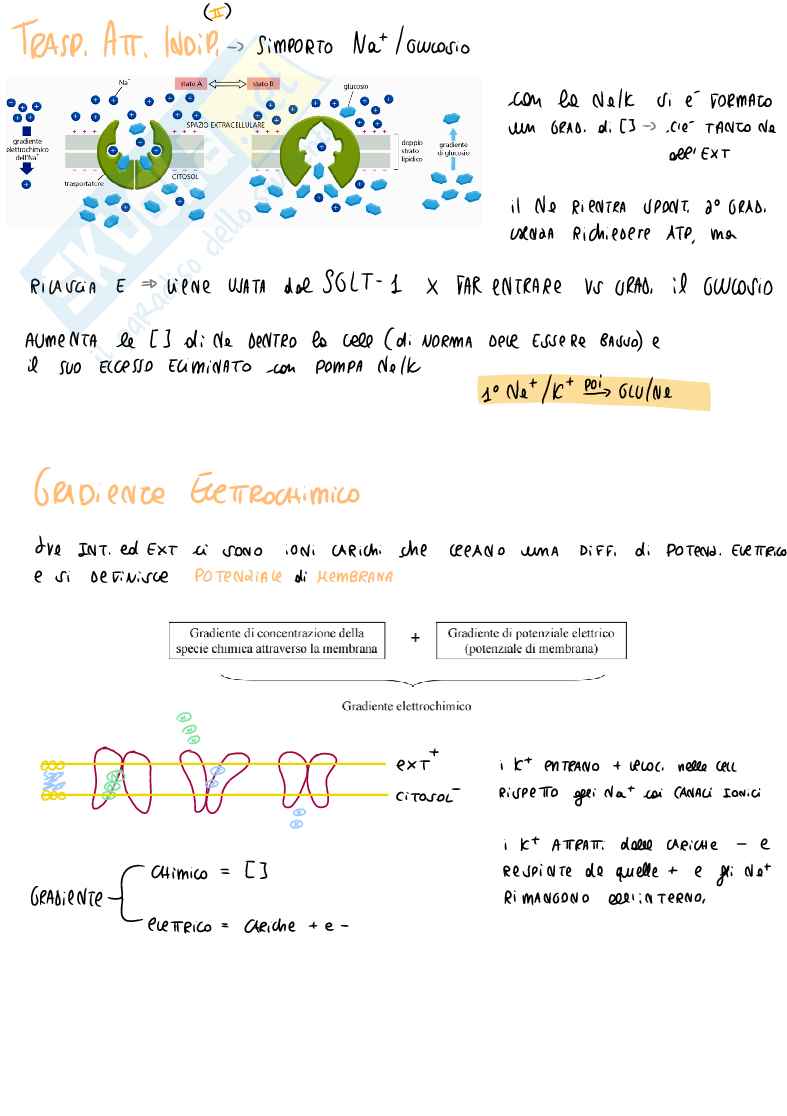 (II)
TRASP. ATT. INDIP. → SIMPORTO Na⁺/GLUCOSIO
Na⁺
stato A
stato B
glucosio
SPAZIO EXTRACELLULARE
gradiente
elettrochimico
dell'Na⁺
trasportatore
CITOSOL
doppio
strato
lipidico
gradiente
di glucosio
con la Na/K si è FORMATO
un GRAD. di [] → c'è TANTO Na
all'EXT
il Na RIENTRA SPONT. 2° GRAD.
SENZA RICHIEDERE ATP, ma
RILASCIA E ⇒ VIENE USATA dal SGLT-1 X FAR ENTRARE VS GRAD. il GLUCOSIO
AUMENTA la [] di Na DENTRO la cell (di NORMA DEVE ESSERE BASSO) e
il SUO ECCESSO ELIMINATO con POMPA Na/K
1° Na⁺/K⁺ poi→ GLU/Na
GRADIENTE ELETTROCHIMICO
tra INT. ed EXT ci SONO IONI CARICHI che CREANO UNA DIFF. di POTENZ. ELETTRICO
e si DEFINISCE POTENZIALE di MEMBRANA
Gradiente di concentrazione della
specie chimica attraverso la membrana
+
Gradiente di potenziale elettrico
(potenziale di membrana)
Gradiente elettrochimico
EXT⁺
CITOSOL⁻
i K⁺ ENTRANO + VELOC. nelle CELL
RISPETTO agli Na⁺ coi CANALI IONICI
i K⁺ ATTRATTI dalle CARICHE - e
RESPINTE da quelle + e gli Na⁺
RIMANGONO all'INTERNO.
GRADIENTE
CHIMICO = []
ELETTRICO = CARICHE + e -
SKUOLA.net
il paradiso dello